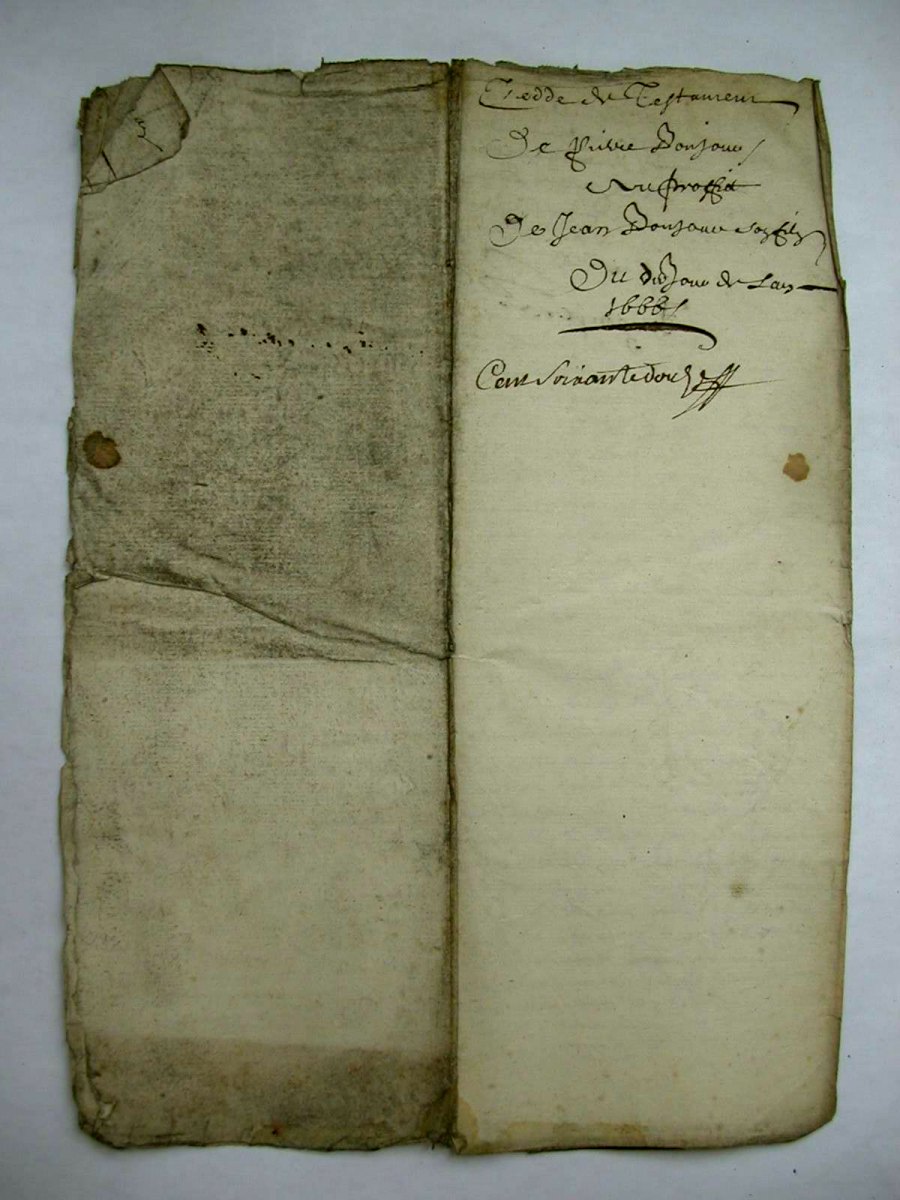 Cedde de Testament
De pierre Bonjour
Au proffit
De Jean Bonjour son filz
Du du Jour de Lan
1666
Cent Soixante douze